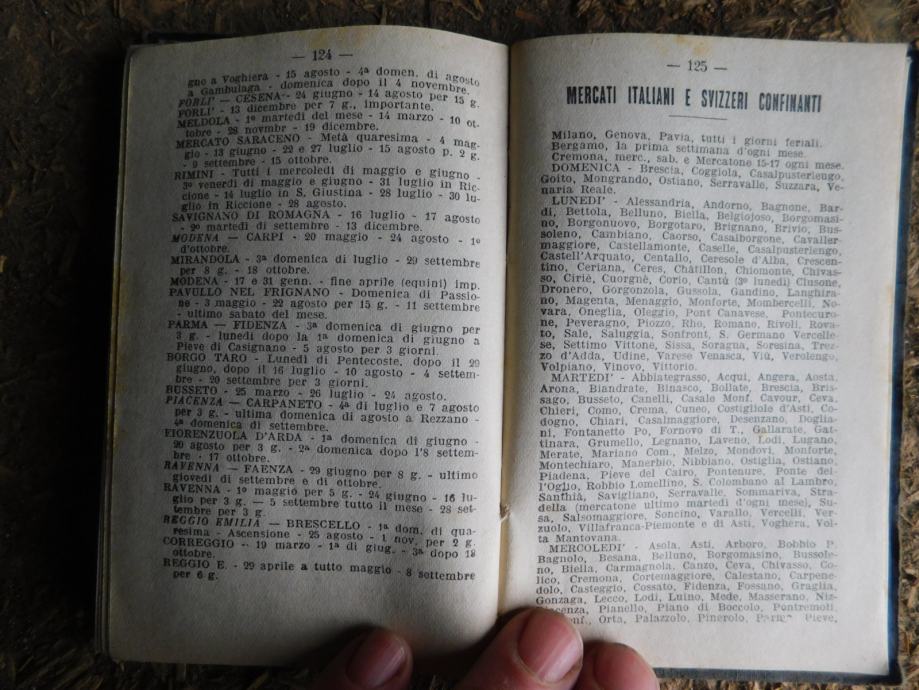 — 124 —
gno a Voghiera - 15 agosto - 4ª domen. di agosto
a Gambulaga - domenica dopo il 4 novembre.
FORLI' — CESENA - 24 giugno - 14 agosto per 15 g.
FORLI' - 13 dicembre per 7 g., importante.
MELDOLA - 1º martedì del mese - 14 marzo - 10 ot-
tobre - 28 novmbr - 19 dicembre.
MERCATO SARACENO - Metà quaresima - 4 mag-
gio - 13 giugno - 22 e 27 luglio - 15 agosto p. 2 g.
- 9 settembre - 15 ottobre.
RIMINI - Tutti i mercoledì di maggio e giugno -
3º venerdì di maggio e giugno - 31 luglio in Ric-
cione - 14 luglio in S. Giustina - 28 luglio - 30 lu-
glio in Riccione - 28 agosto.
SAVIGNANO DI ROMAGNA - 16 luglio - 17 agosto
- 2º martedì di settembre - 13 dicembre.
MODENA — CARPI - 20 maggio - 24 agosto - 1º
d'ottobre.
MIRANDOLA - 3ª domenica di luglio - 29 settembre
per 8 g. - 18 ottobre.
MODENA - 17 e 31 genn. - fine aprile (equini) imp.
PAVULLO NEL FRIGNANO - Domenica di Passio-
ne - 3 maggio - 22 agosto per 15 g. - 11 settembre
- ultimo sabato del mese.
PARMA — FIDENZA - 3ª domenica di giugno per
3 g. - lunedì dopo la 1ª domenica di giugno a
Pieve di Casignano - 5 agosto per 3 giorni.
BORGO TARO - Lunedì di Pentecoste, dopo il 29
giugno, dopo il 16 luglio - 10 agosto - 4 settem-
bre - 20 settembre per 3 giorni.
BUSSETO - 25 marzo - 26 luglio - 24 agosto.
PIACENZA — CARPANETO - 4ª di luglio e 7 agosto
per 3 g. - ultima domenica di agosto a Rezzano -
4ª domenica di settembre.
FIORENZUOLA D'ARDA - 1ª domenica di giugno -
20 agosto per 3 g. - 2ª domenica dopo l'8 settem-
bre - 17 ottobre.
RAVENNA — FAENZA - 29 giugno per 8 g. - ultimo
giovedì di settembre e di ottobre.
RAVENNA - 1º maggio per 5 g. - 24 giugno - 16 lu-
glio per 3 g. — 5 settembre tutto il mese - 28 set-
tembre per 3 g.
REGGIO EMILIA — BRESCELLO - 1ª dom. di qua-
resima - Ascensione - 25 agosto - 1 nov. per 2 g.
CORREGGIO - 19 marzo - 1ª di giug. - 3ª dopo 18
ottobre.
REGGIO E. - 29 aprile a tutto maggio - 8 settembre
per 6 g.
— 125 —
MERCATI ITALIANI E SVIZZERI CONFINANTI
Milano, Genova, Pavia, tutti i giorni feriali.
Bergamo, la prima settimana d'ogni mese.
Cremona, merc., sab. e Mercatone 15-17 ogni mese.
DOMENICA - Brescia, Coggiola, Casalpusterlengo,
Goito, Mongrando, Ostiano, Serravalle, Suzzara, Ve-
naria Reale.
LUNEDI' - Alessandria, Andorno, Bagnone, Bar-
di, Bettola, Belluno, Biella, Belgiojoso, Borgomasi-
no, Borgonuovo, Borgotaro, Brignano, Brivio, Bus-
soleno, Cambiano, Caorso, Casalborgone, Cavaller-
maggiore, Castellamonte, Caselle, Casalpusterlengo,
Castell'Arquato, Centallo, Ceresole d'Alba, Crescen-
tino, Ceriana, Ceres, Châtillon, Chiomonte, Chivas-
so, Ciriè, Cuorgnè, Corio, Cantù (3º lunedì) Clusone,
Dronero, Gorgonzola, Gussola, Gandino, Langhira-
no, Magenta, Menaggio, Monforte, Mombercelli, No-
vara, Oneglia, Oleggio, Pont Canavese, Pontecuro-
ne, Peveragno, Piozzo, Rho, Romano, Rivoli, Rova-
to, Sale, Saluggia, Sonfront, S. Germano Vercelle-
se, Settimo Vittone, Sissa, Soragna, Soresina, Trez-
zo d'Adda, Udine, Varese Venasca, Viù, Verolengo,
Volpiano, Vinovo, Vittorio.
MARTEDI' - Abbiategrasso, Acqui, Angera, Aosta,
Arona, Biandrate, Binasco, Bollate, Brescia, Bris-
sago, Busseto, Canelli, Casale Monf. Cavour, Ceva,
Chieri, Como, Crema, Cuneo, Costigliole d'Asti, Co-
dogno, Chiari, Casalmaggiore, Desenzano, Doglia-
ni, Fontanetto Po, Fornovo di T., Gallarate, Gat-
tinara, Grumello, Legnano, Laveno, Lodi, Lugano,
Merate, Mariano Com., Melzo, Mondovì, Monforte,
Montechiaro, Manerbio, Nibbiano, Ostiglia, Ostiano,
Piadena, Pieve del Cairo, Pontenure, Ponte del-
l'Oglio, Robbio Lomellino, S. Colombano al Lambro,
Santhià, Savigliano, Serravalle, Sommariva, Stra-
della (mercatone ultimo martedì d'ogni mese), Su-
sa, Salsomaggiore, Soncino, Varallo, Vercelli, Ver-
zuolo, Villafranca-Piemonte e di Asti, Voghera, Vol-
ta Mantovana.
MERCOLEDI' - Asola, Asti, Arboro, Bobbio P.
Bagnolo, Besana, Belluno, Borgomasino, Bussole-
no, Biella, Carmagnola, Canzo, Ceva, Chivasso, Co-
lico, Cremona, Cortemaggiore, Calestano, Carpene-
dolo, Casteggio, Cossato, Fidenza, Fossano, Graglia,
Gonzaga, Lecco, Lodi, Luino, Mede, Masserano, Niz-
Pianello, Piano di Boccolo, Pontremoli,
Orta, Palazzolo, Pinerolo, Pieve,